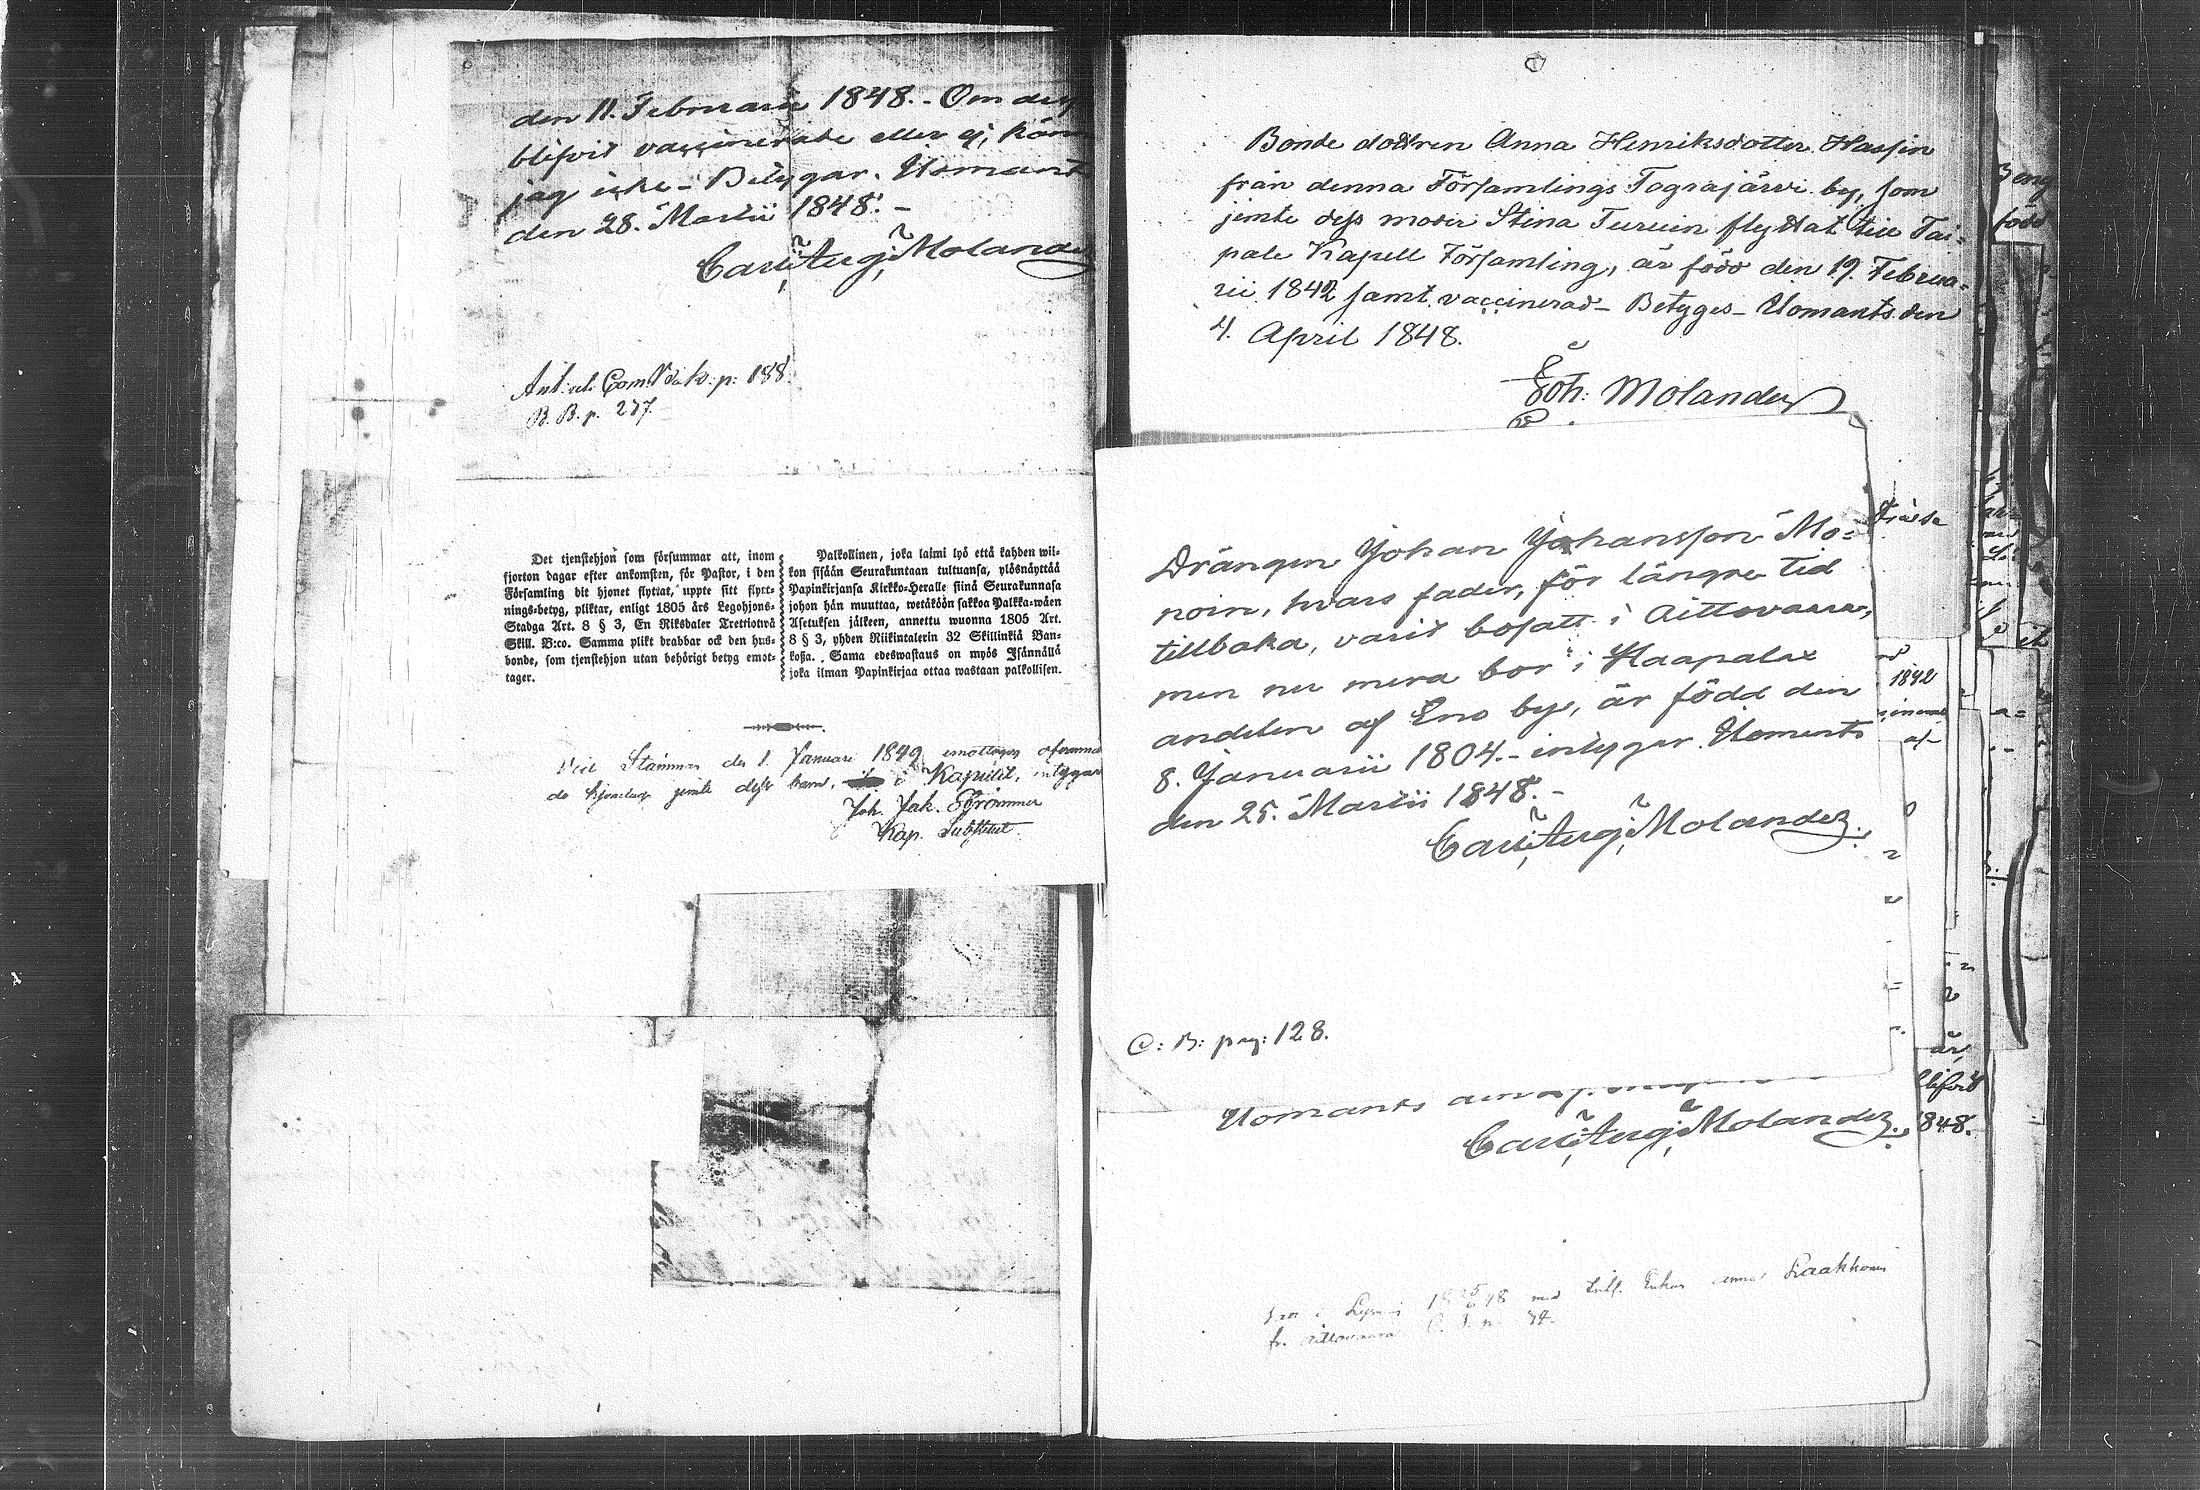 den 11. Februarii 1848. - Om de
blifvit vaccinerade eller ej, kän
jag icke - Betygar. Ilomant
den 28. Martii 1848. -
Carl Aug. Molander
p: 188.
B. B. p. 237.
Det tjenstehjon som försummar att, inom
fjorton dagar efter ankomsten, för Pastor, i den
Församling dit hjonet flyttat, uppte sitt flytt-
nings-betyg, pliktar, enligt 1805 års Legohjons-
Stadga Art. 8 § 3, En Riksdaler Trettiotvå
Skill. B:co. Samma plikt drabbar ock den hus-
bonde, som tjenstehjon utan behörigt betyg emot-
tager.
Palkollinen, joka laimi lyö että kahden wii-
kon sisään Seurakuntaan tultuansa, ylösnäyttää
Papinkirjansa Kirkko-Heralle siinä Seurakunnasa
johon hän muuttaa, wetäköön sakkoa Palkka-wäen
Asetuksen jälkeen, annettu wuonna 1805 Art.
8 § 3, yhden Riikintalerin 32 Skillinkiä Ban-
koßa. Sama edeswastaus on myös Isännällä
joka ilman Papinkirjaa ottaa wastaan palkollisen.
Vid Stämman den 1. Januari 1849 emottogos ofvannä
jemte dess barn, i Kapellet, intygar
Joh. Jak. Strömmer
Kap. Substitut.
Bonde dottren Anna Henriksdotter Hassin
från denna Församlings Tograjärvi by, som
jemte dess moder Stina Turuin flyttat till Tai=
pale Kapell Församling, är född den 19. Februa=
rii 1842 samt vaccinerad - Betyges - Ilomants den
4. April 1848.
Joh: Molander
Drängen Johan Johansson Mo=
noin, hvars fader, för längre tid
tillbaka, varit bosatt i Aittovaara,
men nu mera bor i Haapalax
andelen af Eno by, är född den
8. Januarii 1804. - intygar. Ilomants
den 25. Martii 1848. -
Carl Aug. Molander.
C: B: pag: 128.
Ilomants
Carl Aug. Molander.
fr. Aittovaara
1842
är
blifvit
1848.
född